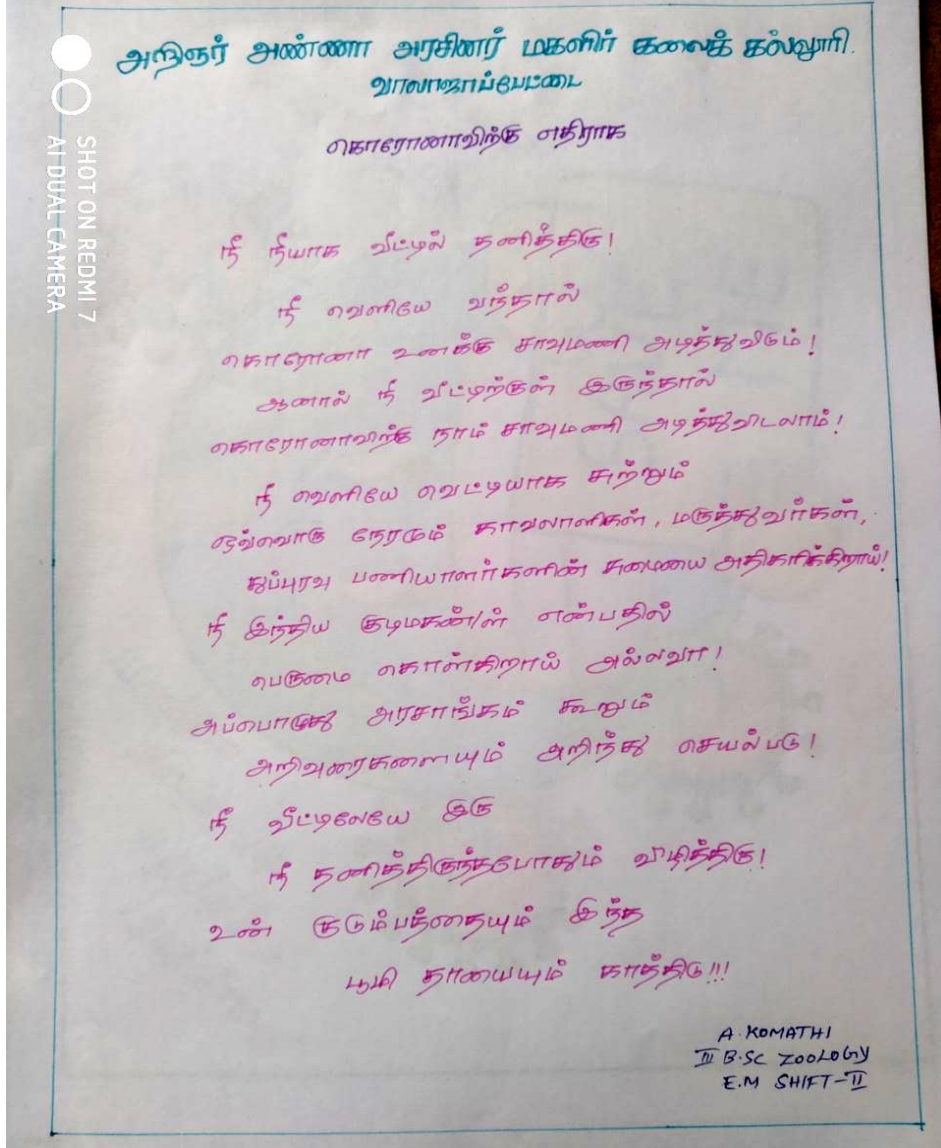 அறிஞர் அண்ணா அரசினர் மகளிர் கலைக் கல்லூரி.
வாலாஜாப்பேட்டை
கொரோனாவிற்கு எதிராக
நீ நீயாக வீட்டில் தனித்திரு!
நீ வெளியே வந்தால்
கொரோனா உனக்கு சாவுமணி அடித்துவிடும்!
ஆனால் நீ வீட்டிற்குள் இருந்தால்
கொரோனாவிற்கு நாம் சாவுமணி அடித்துவிடலாம்!
நீ வெளியே வெட்டியாக சுற்றும்
ஒவ்வொரு நேரமும் காவலாளிகள், மருத்துவர்கள்,
துப்புரவு பணியாளர்களின் சுமையை அதிகரிக்கிறாய்!
நீ இந்திய குடிமகன்/ள் என்பதில்
பெருமை கொள்கிறாய் அல்லவா!
அப்பொழுது அரசாங்கம் கூறும்
அறிவுரைகளையும் அறிந்து செயல்படு!
நீ வீட்டிலேயே இரு
நீ தனித்திருந்தபோதும் விழித்திரு!
உன் குடும்பத்தையும் இந்த
பூமி தாயையும் காத்திடு!!!
A. KOMATHI
III B.SC ZOOLOGY
E.M SHIFT-II
SHOT ON REDMI 7
AI DUAL CAMERA